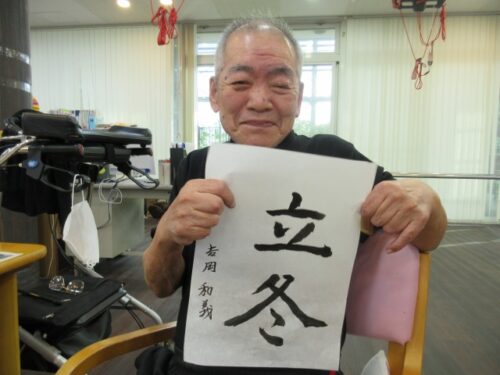 立冬
吉岡 和義